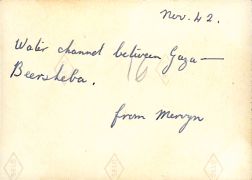 Nov. 42.
Water channel between Gaza —
Beersheba.
16
from Mervyn